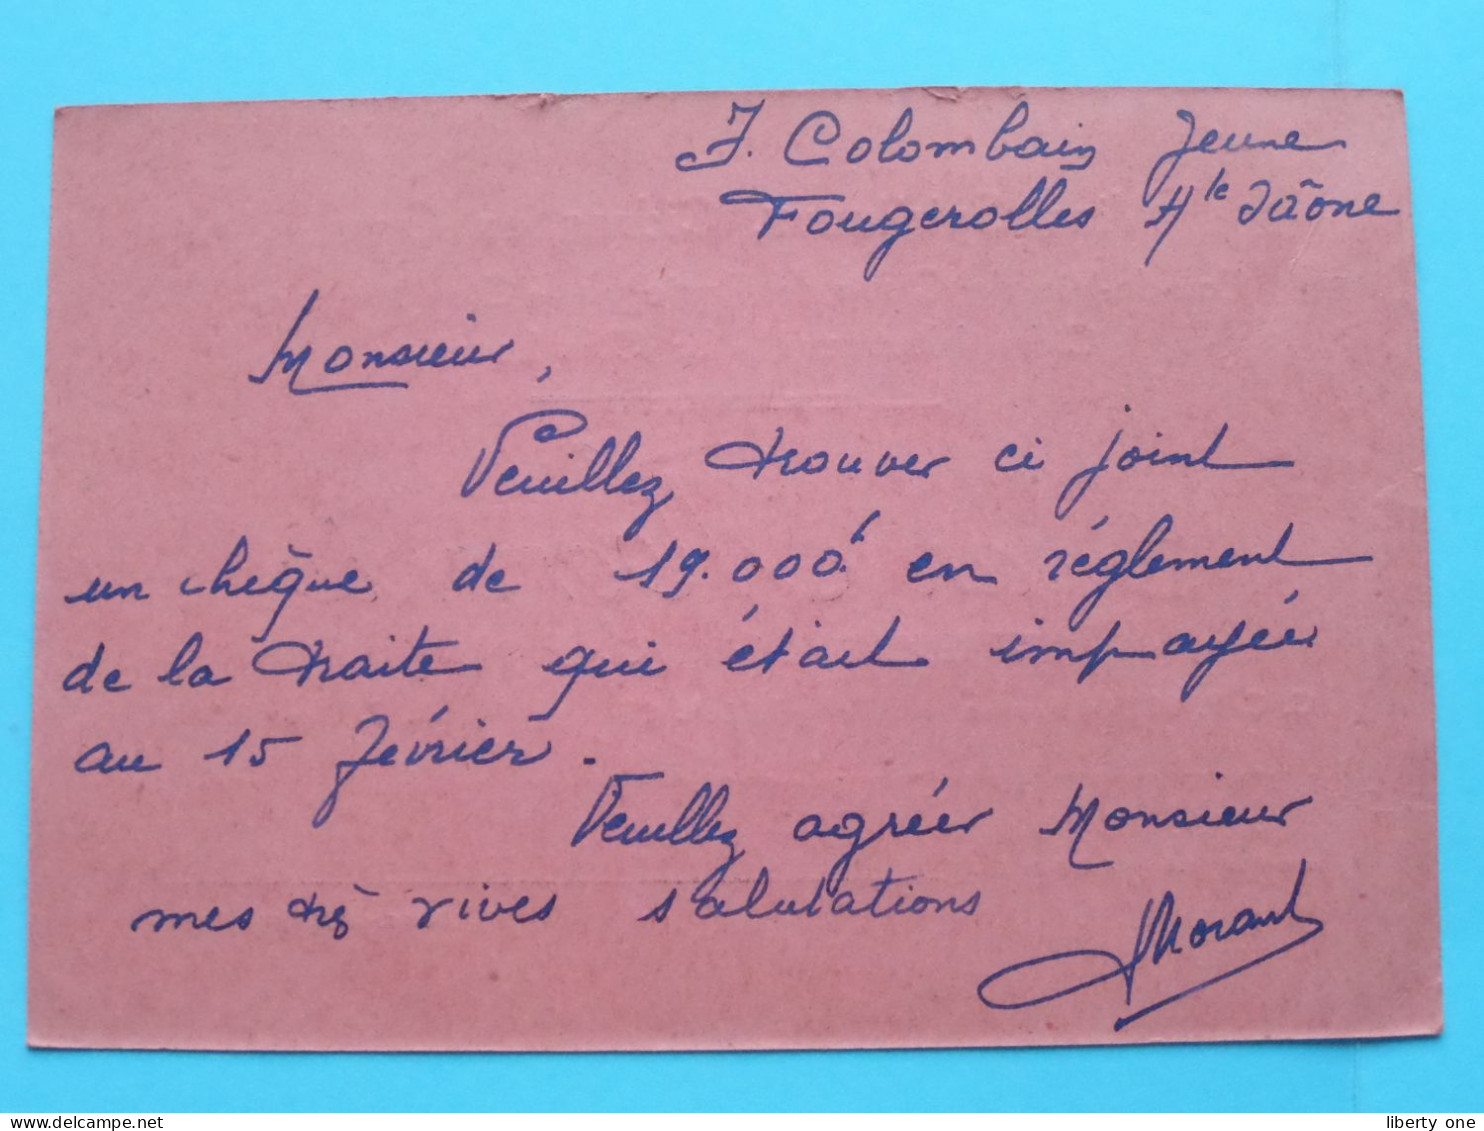 J. Colombain Jeune
Fougerolles Hte Saône
Monsieur,
Veuillez trouver ci joint
un chèque de 19.000f en réglement
de la traite qui était impayée
au 15 Février.
Veuillez agréer Monsieur
mes très vives salutations
Morant
www.delcampe.net
liberty one